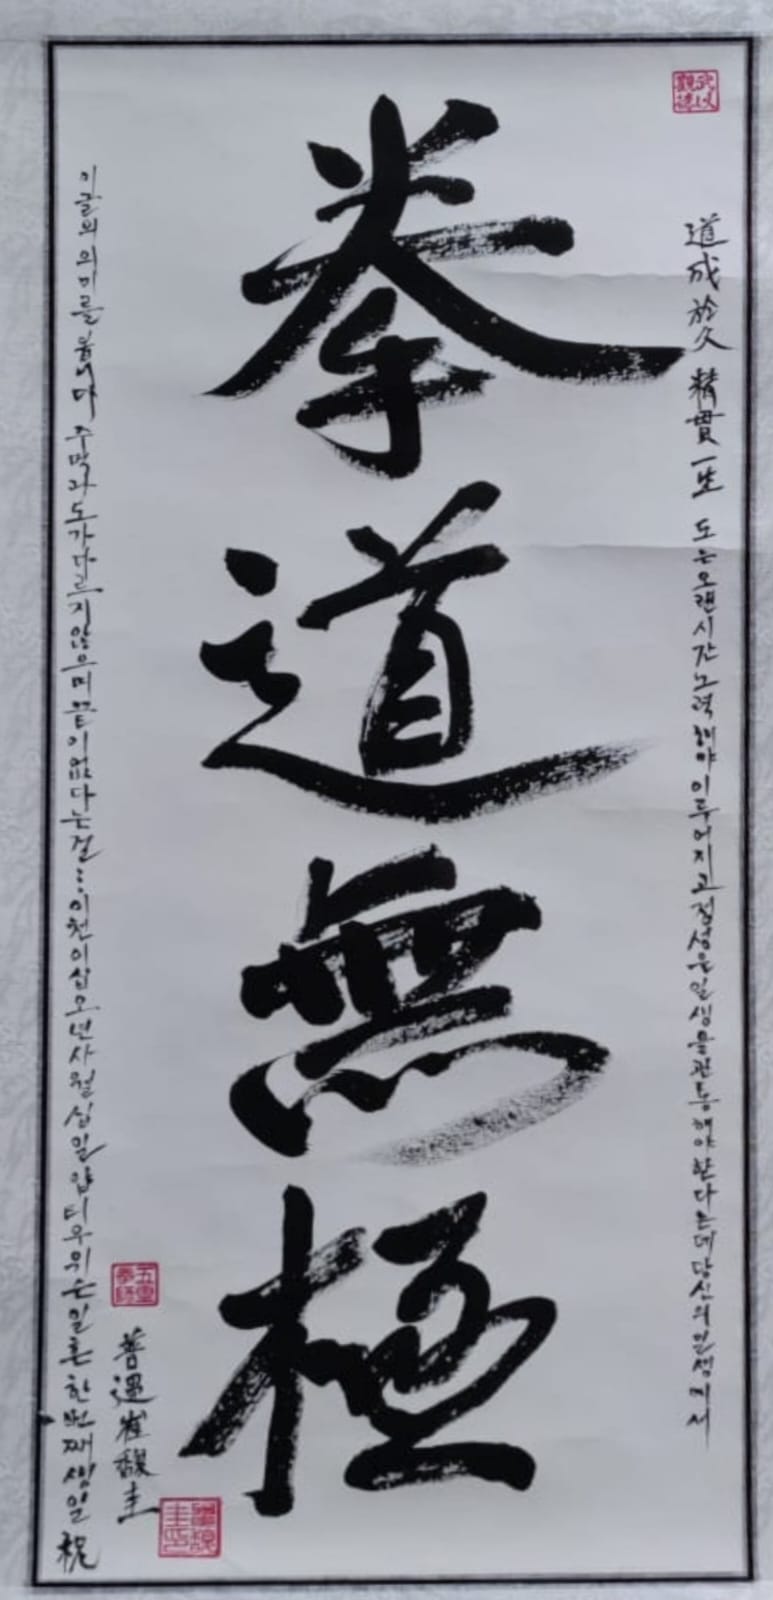 道成於久 精貫一生 도는오랜시간노력해야이루어지고정성은일생을관통해야한다는데당신의인생에서
拳道無極
이글의의미를봅니다 주먹과도가다르지않으며끝이없다는걸… 이천이십오년사월십일얍티우 일흔한번째생일 祝
善遇崔馥圭